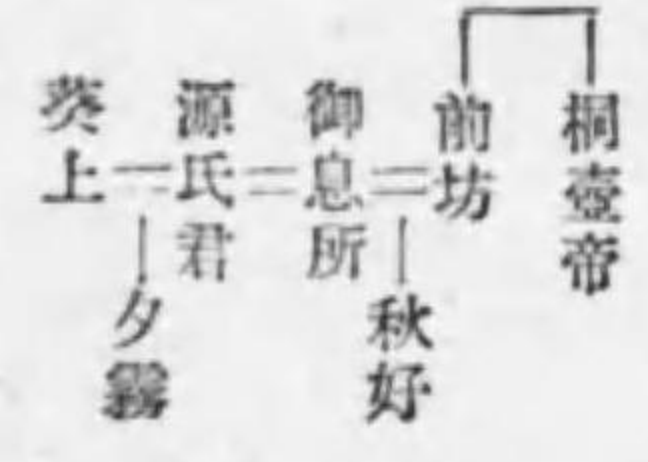 桐壺帝
前坊
秋好
御息所
源氏君
夕霧
葵上